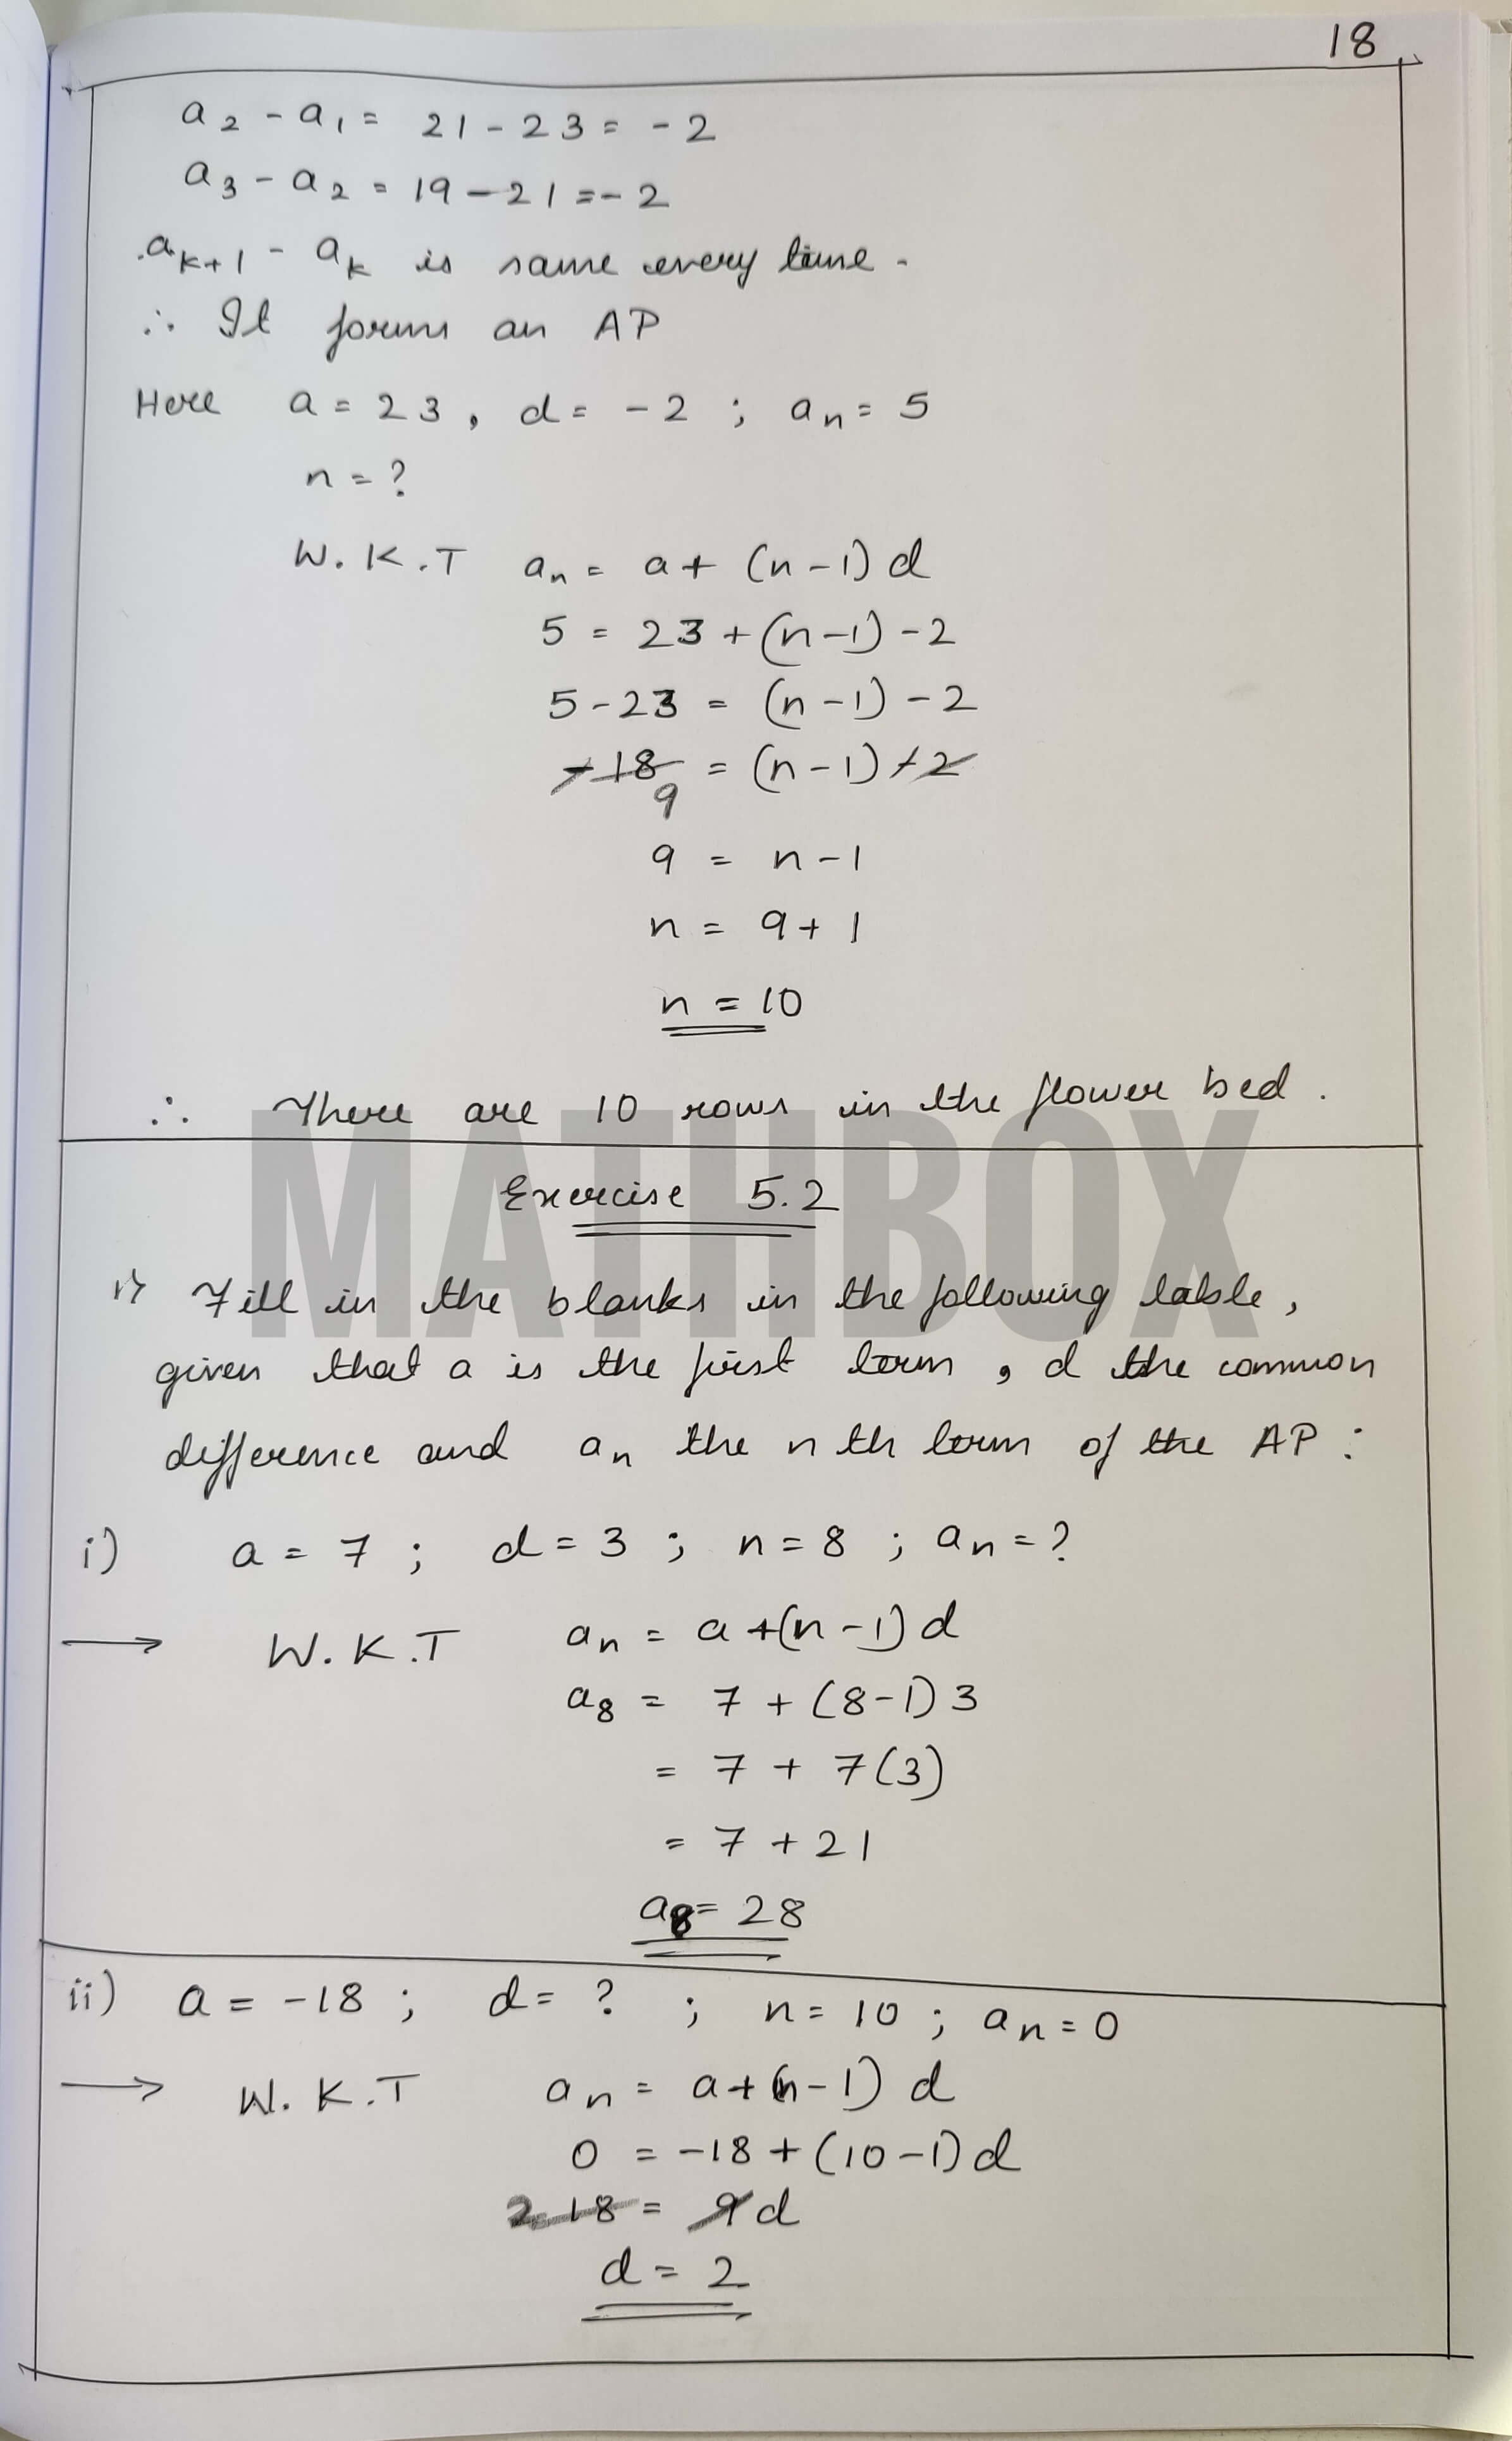 18
a₂ - a₁ = 21 - 23 = -2
a₃ - a₂ = 19 - 21 = -2
aₖ₊₁ - aₖ is same every time.
∴ It forms an AP
Here a = 23, d = -2 ; aₙ = 5
n = ?
W.K.T aₙ = a + (n-1) d
5 = 23 + (n-1) -2
5 - 23 = (n-1) -2
-18 = (n-1) -2
9
9 = n-1
n = 9+1
n = 10
∴ There are 10 rows in the flower bed.
MATHBOX
Exercise 5.2
1) Fill in the blanks in the following table,
given that a is the first term, d the common
difference and aₙ the nth term of the AP:
i) a = 7 ; d = 3 ; n = 8 ; aₙ = ?
→ W.K.T aₙ = a + (n-1) d
a₈ = 7 + (8-1) 3
= 7 + 7(3)
= 7 + 21
a₈ = 28
ii) a = -18 ; d = ? ; n = 10 ; aₙ = 0
→ W.K.T aₙ = a + (n-1) d
0 = -18 + (10-1) d
2 18 = 9d
d = 2